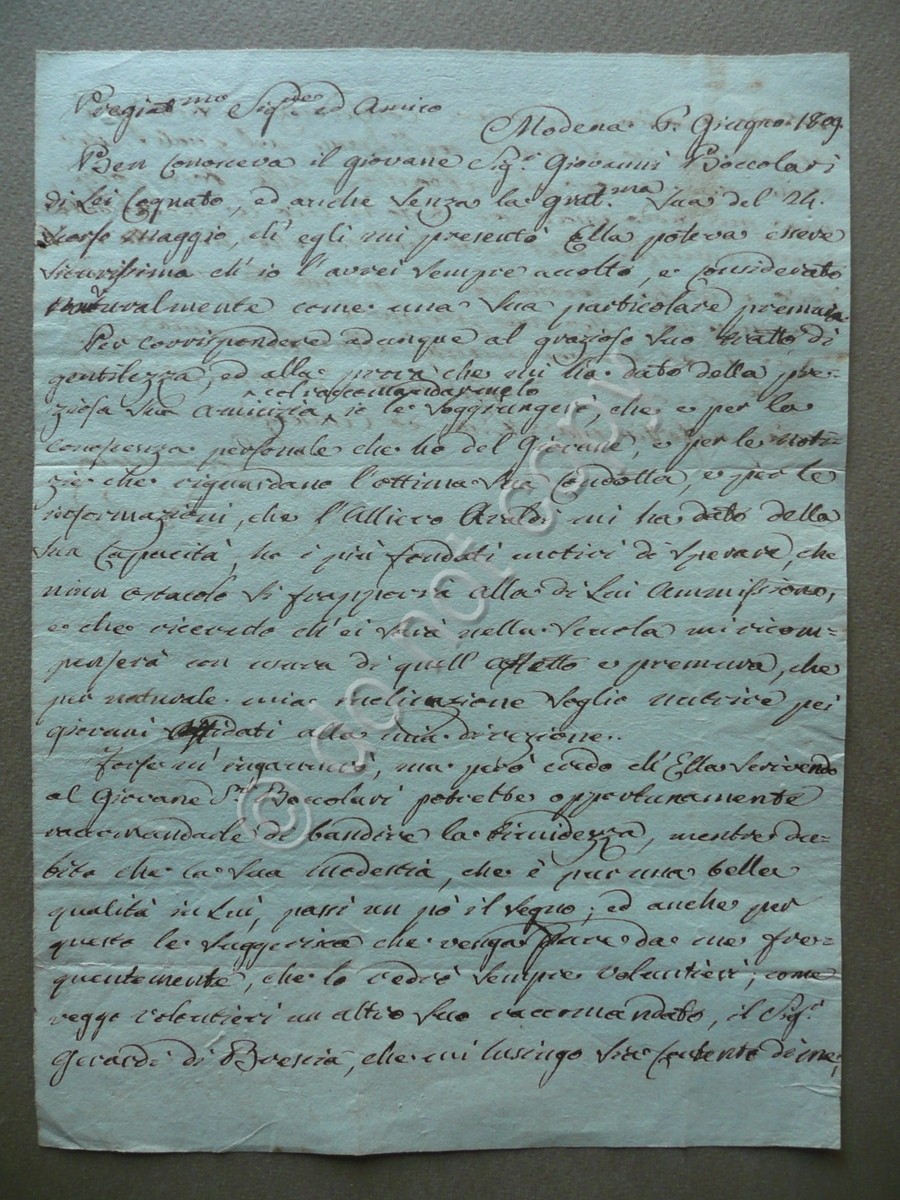 Pregiat.mo Sig.re ed Amico
Modena 6. Giugno 1809.
Ben conosceva il giovane Sig.r Giovanni Boccolari
di Lei Cognato, ed anche senza la grat.ma Sua del 24.
scorso maggio, ch'egli mi presentò Ella poteva essere
sicurissima ch'io l'avrei sempre accolto, e considerato
naturalmente come una Sua particolare premura.
Per corrispondere adunque al grazioso Suo tratto di
gentilezza, ed alla prova che mi ha dato della pre-
col raccomandarmelo
ziosa Sua amicizia, io le soggiungerò, che e per la
conoscenza personale che ho del Giovane, e per le noti-
zie che riguardano l'ottima Sua Condotta, e per le
informazioni, che l'Allievo Araldi mi ha dato della
Sua Capacità, ho i più fondati motivi di Sperare, che
niun ostacolo si frapporrà alla di Lui Ammissione,
e che ricevuto ch'ei sarà nella Scuola mi ricom-
penserà con usura di quell'affetto e premura, che
per naturale mia inclinazione soglio nutrire pei
giovani affidati alla mia direzione.
Forse m'ingannerò, ma però credo ch'Ella Scrivendo
al Giovane S.r Boccolari potrebbe opportunamente
raccomandarle di bandire la timidezza, mentre du-
bito che la Sua modestia, che è pur una bella
qualità in Lui, passi un pò il Segno; ed anche per
questo le Suggerisca che venga pure da me fre-
quentemente, che lo vedrò Sempre volentieri; come
veggo volentieri un altro Suo raccomandato, il Sig.r
Girardi di Brescia, che mi lusingo Sia Contento di me,
© do not copy